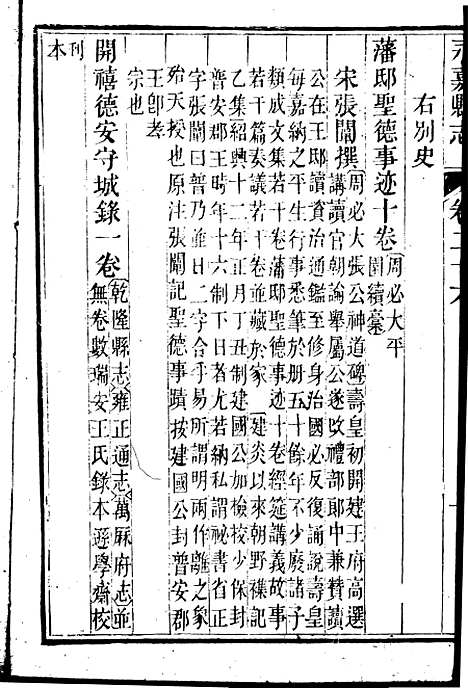 永嘉縣志
卷二十六
右別史
藩邸聖德事迹十卷
周必大平
園續藁
宋張闡撰
周必大張公神道碑壽皇初開建王府高選
講讀官朝論舉屬公遂改禮部郎中兼贊讀
公在王邸讀資治通鑑至修身治國必反復誦說壽皇
每嘉納之平生行事悉筆於册五十餘年不少廢諸子
類成文集若干卷藩邸聖德事迹十卷經筵講義故事
若干篇奏議若干卷並藏於家
建炎以來朝野襍記
乙集紹興十二年正月丁丑制建國公加檢校少保封
普安郡王時年十六制下日者尤若納私謂祕書省正
字張闡曰普乃並日二字合乎易所謂明兩作離之象
殆天授也原注張闡記聖德事蹟按建國公封普安郡
王卽孝
宗也
開禧德安守城錄一卷
乾隆縣志雍正通志萬厤府志並
無卷數瑞安王氏錄本遜學齋校
刊
本